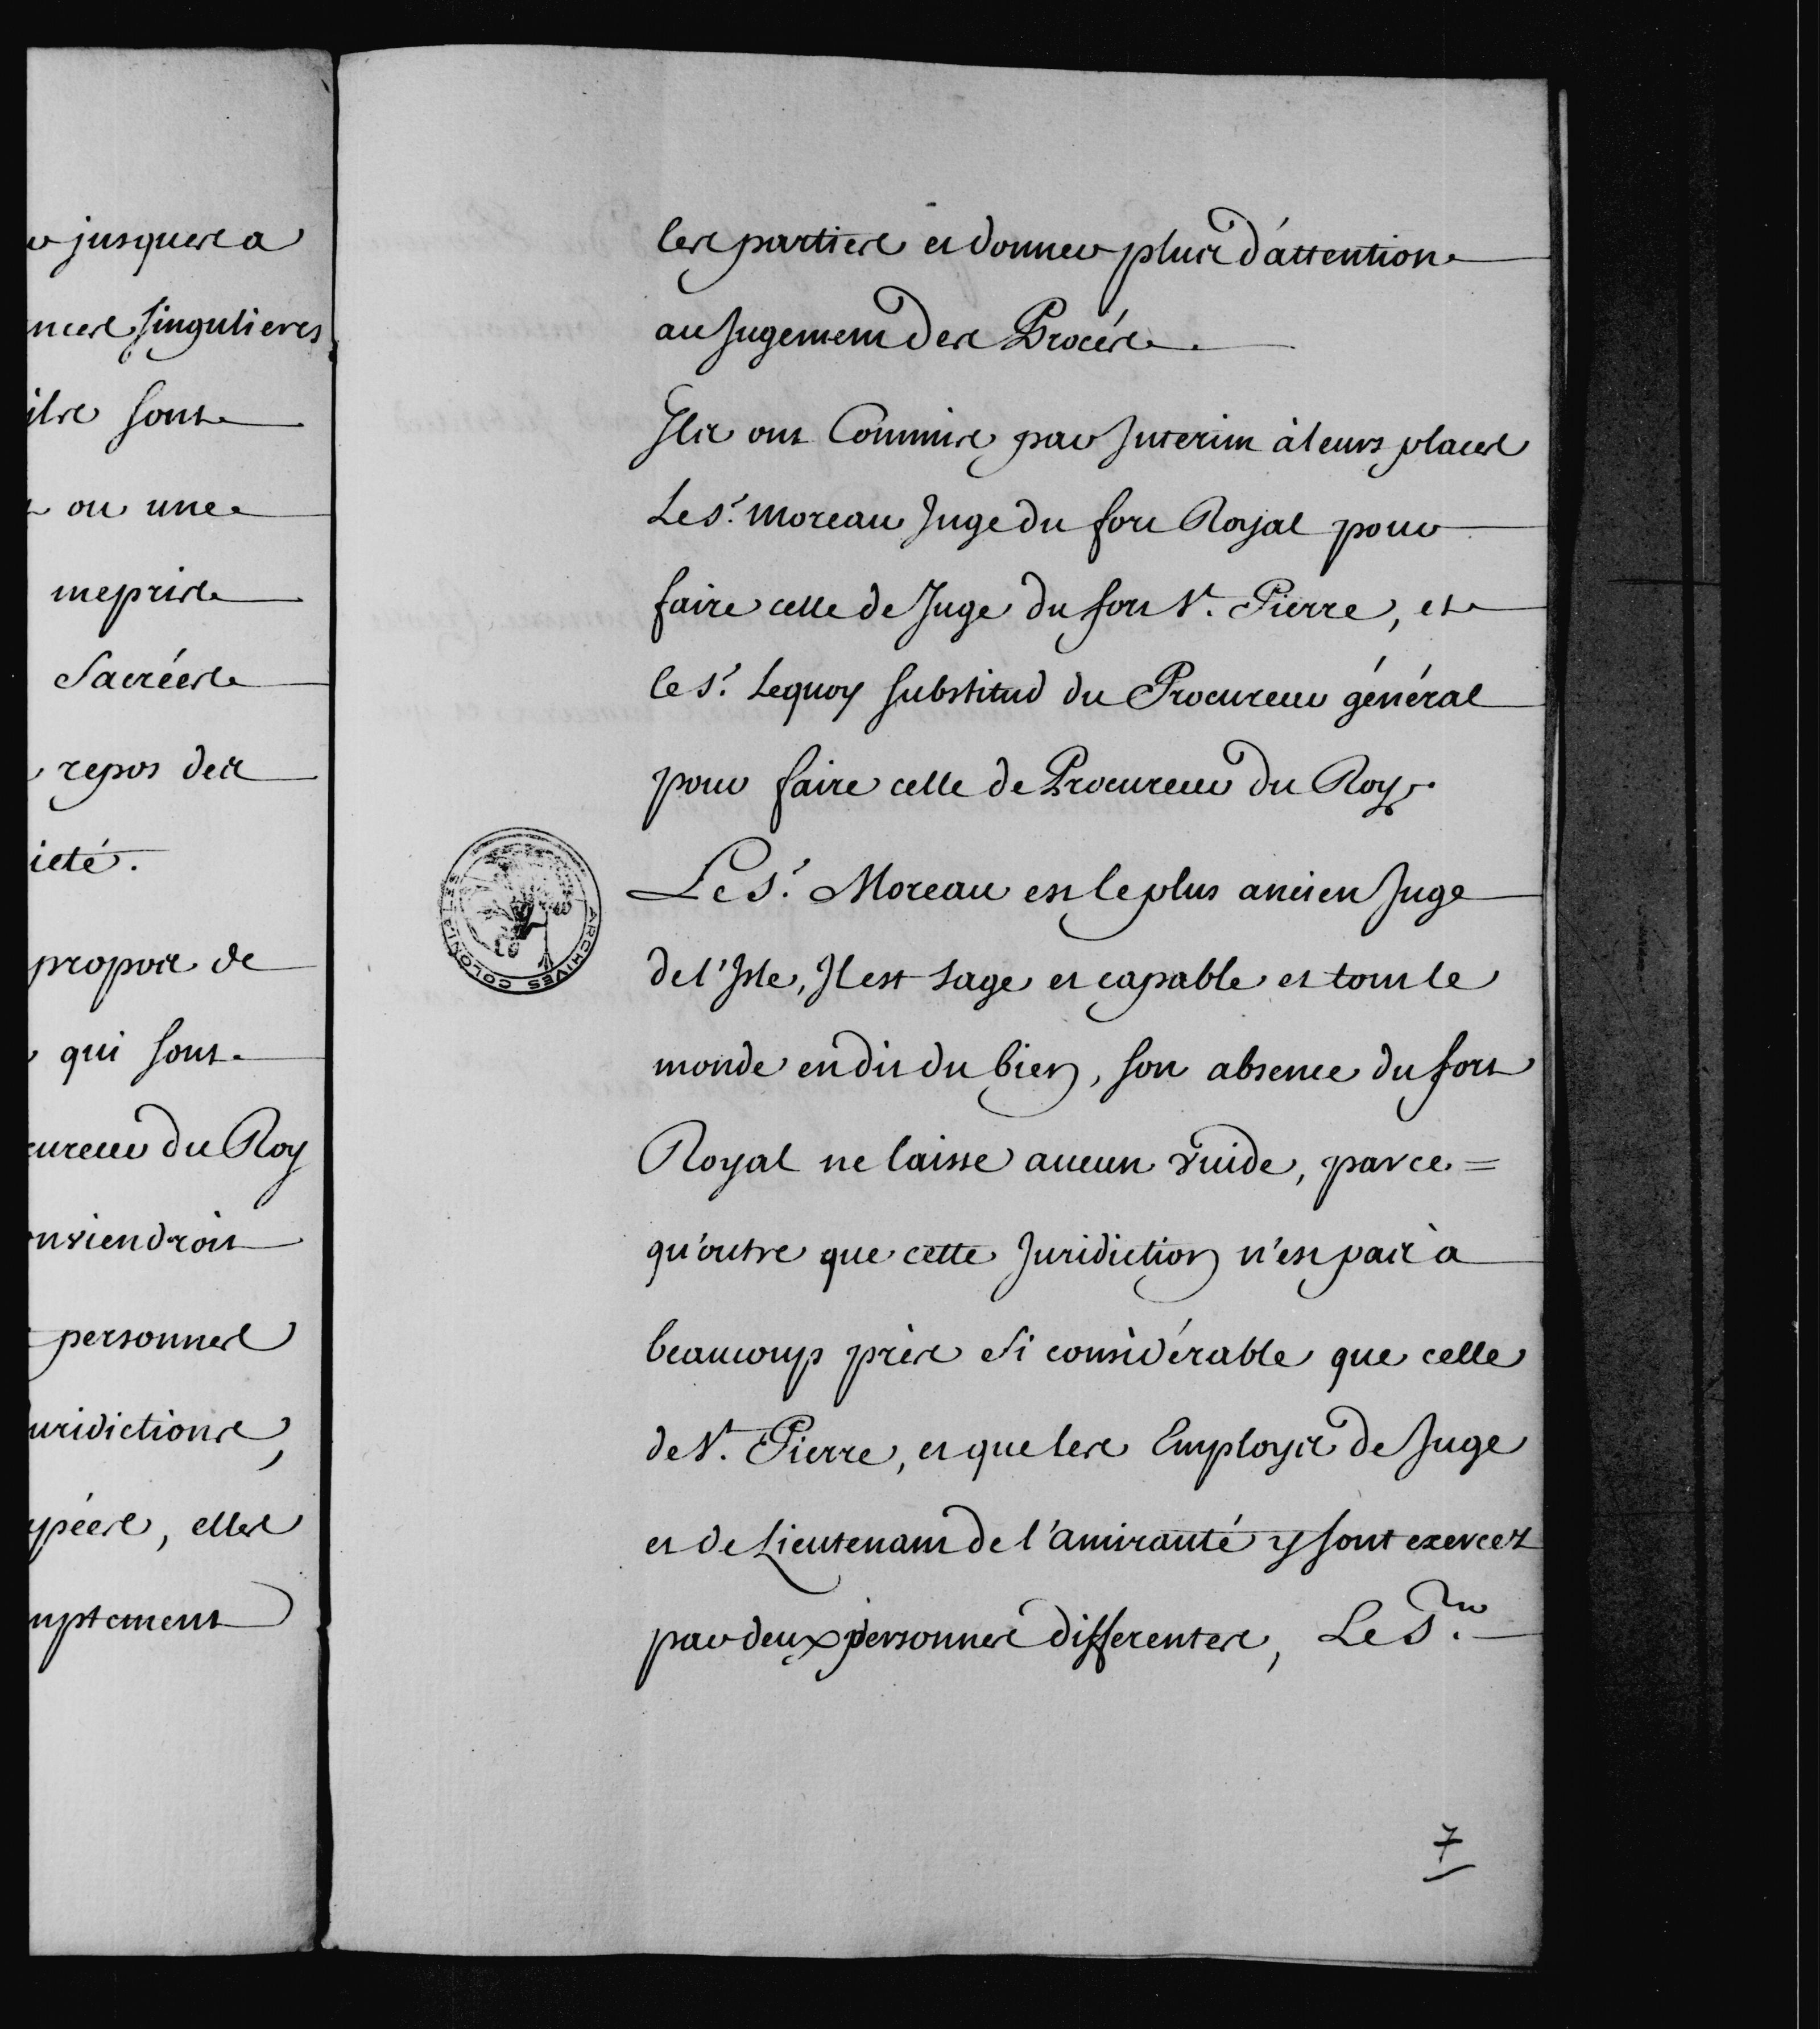 r jusques a
nces singulieres
ils sont
t ou une
meprise
sacrées
repos des
ieté.
propos de
qui sont
cureur du Roy
nviendroit
personnes
uridictions,
pées, elles
mptement
les parties et donner plus d'attention
au Jugement des Procés.
Ils ont Commis par Interim à leurs places
Le Sr. moreau Juge du fort Royal pour
faire celle de Juge du fort St. Pierre, et
le Sr. Lequoy substitud du Procureur général
pour faire celle de Procureur du Roy.
Le Sr. Moreau est le plus ancien Juge
de l'Isle, Il est sage et capable et tout le
monde en dit du bien, son absence du fort
Royal ne laisse aucun vuide, parce=
qu'outre que cette Juridiction n'est pas à
beaucoup près si considérable que celle
de St. Pierre, et que les Employs de Juge
et de Lieutenant de l'amirauté y sont exercez
par deux personnes differentes, Le Sr.
ARCHIVES COLONIALES
7